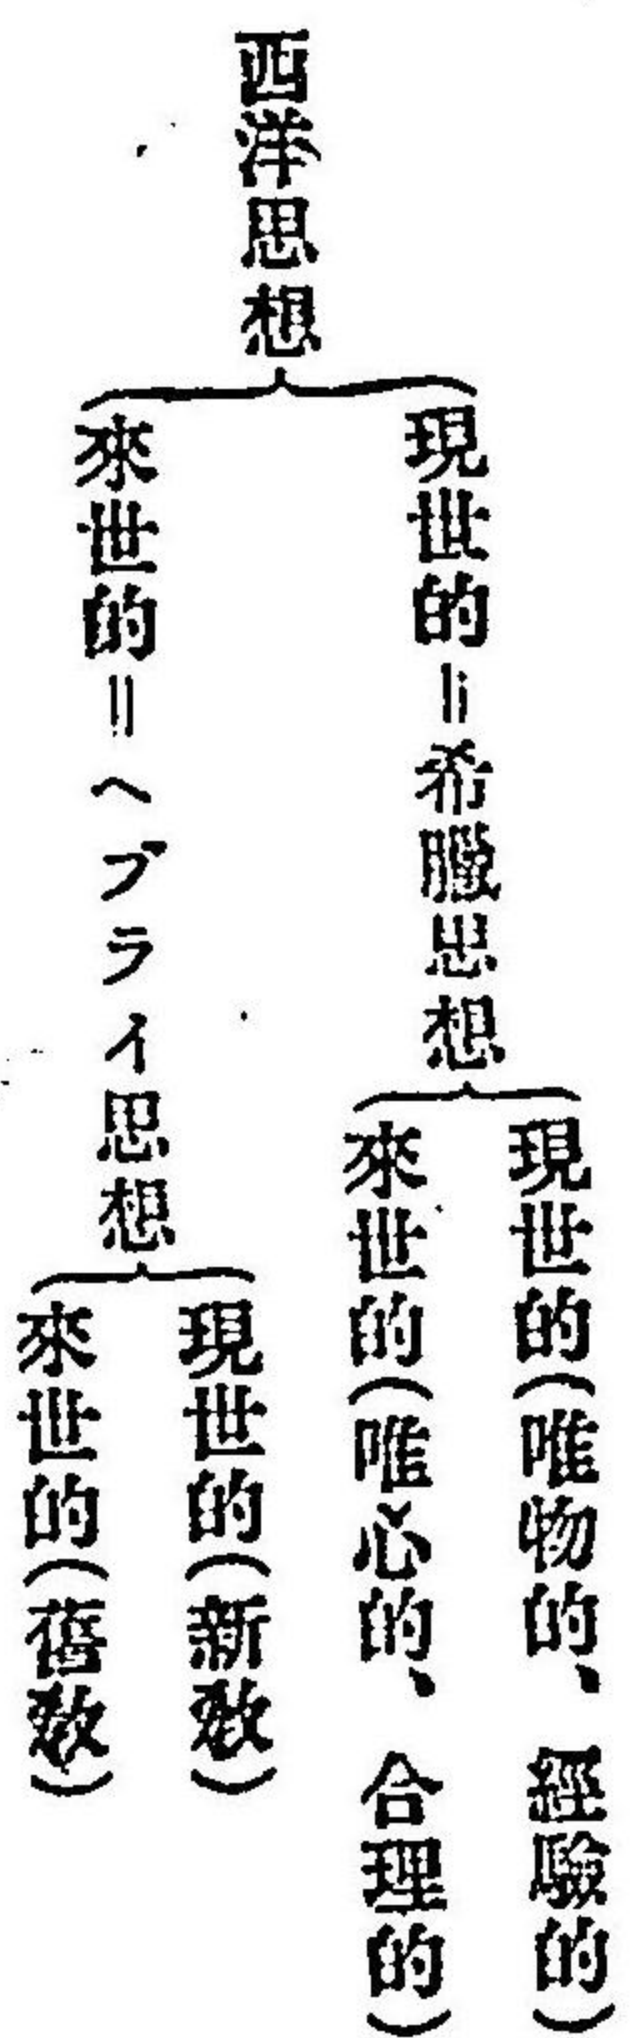 西洋思想
現世的＝希臘思想
現世的(唯物的、經驗的)
來世的(唯心的、合理的)
來世的＝ヘブライ思想
現世的(新敎)
來世的(舊敎)